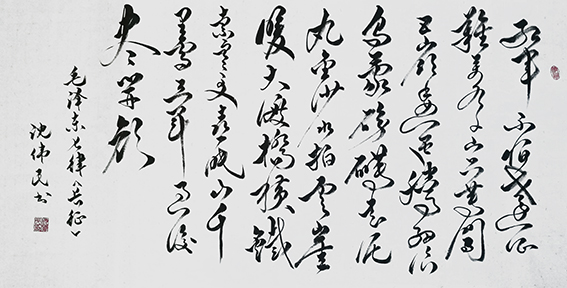 红军不怕远征
難万水千山只等闲
五岭逶迤腾细浪
乌蒙磅礴走泥
丸金沙水拍云崖
暖大渡橋横鐵
索寒更喜岷山千
里雪三军过后
尽开颜
毛泽东七律《长征》
沈伟民书